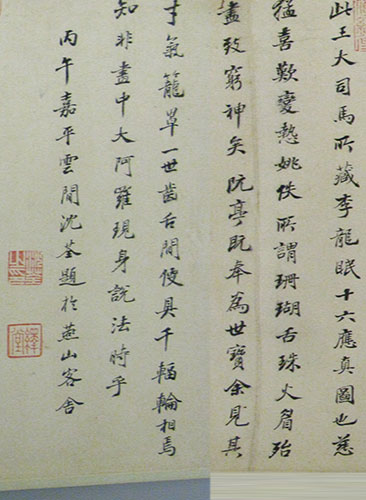 此王大司馬所藏李龍眠十六應真圖也慈
猛喜歎變熱姚佚所謂珊瑚舌珠火眉殆
盡致窮神矣阮亭既奉為世寶余見其
才氣籠罩一世齒舌間便具千輻輪相焉
知非畫中大阿羅現身說法時乎
丙午嘉平雲間沈荃題於燕山客舍